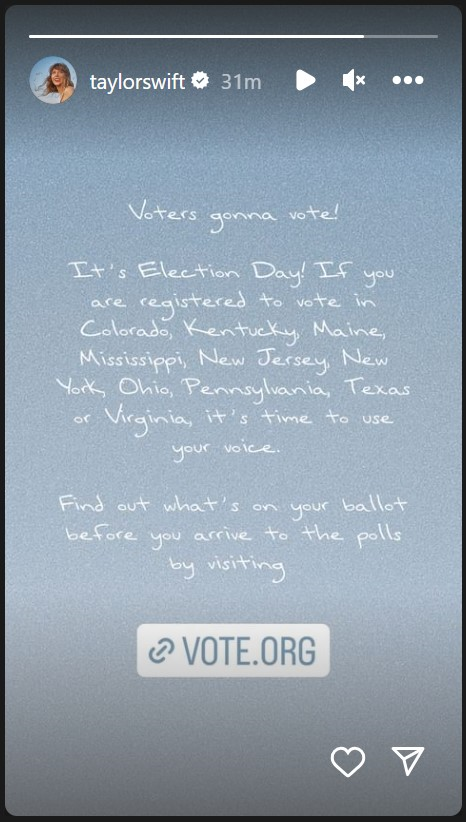 taylorswift 31m
Voters gonna vote!
It's Election Day! If you
are registered to vote in
Colorado, Kentucky, Maine,
Mississippi, New Jersey, New
York, Ohio, Pennsylvania, Texas
or Virginia, it's time to use
your voice.
Find out what's on your ballot
before you arrive to the polls
by visiting
VOTE.ORG